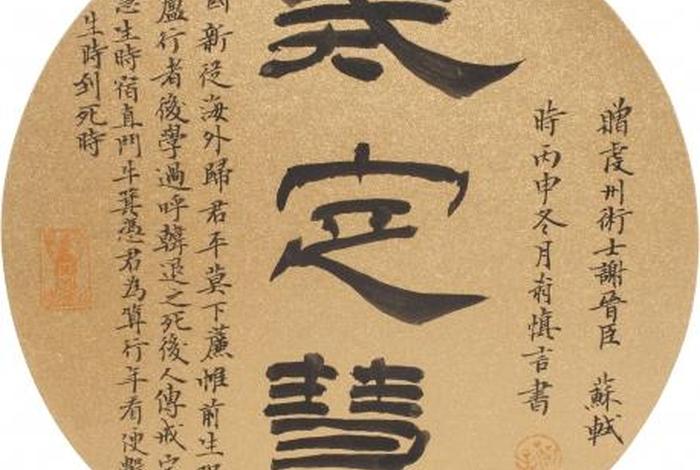 贈虔州術士謝晉臣 蘇軾
時丙申冬月慎言書
戒定慧
國新從海外歸君平莫下簾帷前生
盧行者後學過呼韓退之死後人傳戒定
慧生時宿直鬥牛箕憑君為算行年看便數
生時到死時